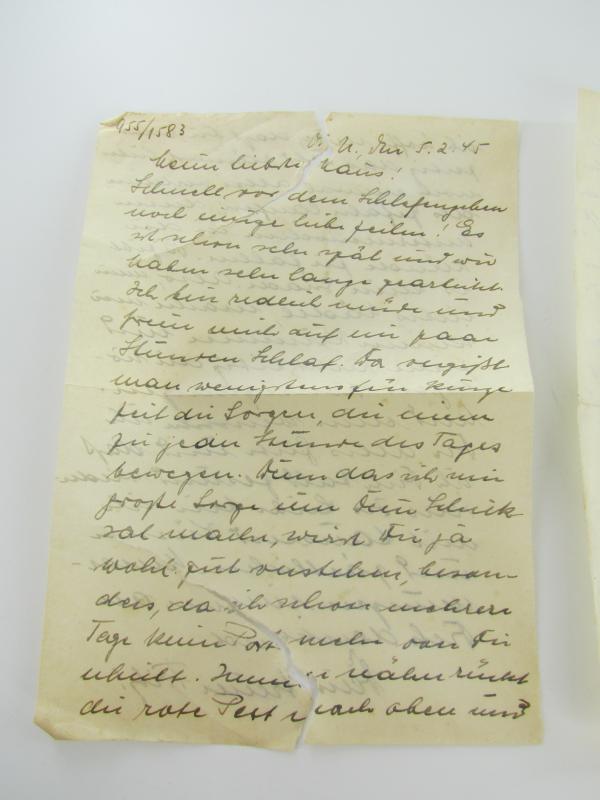 955/1583
O. U., den 5.2.45
Mein liebster Hans!
Schnell vor dem Schlafengehen
noch einige liebe Zeilen! Es
ist schon sehr spät und wir
haben sehr lange gearbeitet.
Ich bin redlich müde und
freue mich auf ein paar
Stunden Schlaf. Da vergißt
man wenigstens für kurze
Zeit die Sorgen, die einem
zu jeder Stunde des Tages
bewegen. Denn das ich mir
große Sorge um Dein Schick
sal mache, wirst Du ja
wohl gut verstehen, beson-
ders, da ich schon mehrere
Tage kein Post mehr von Dir
erhielt. Immer näher rückt
die rote Pest nach oben und